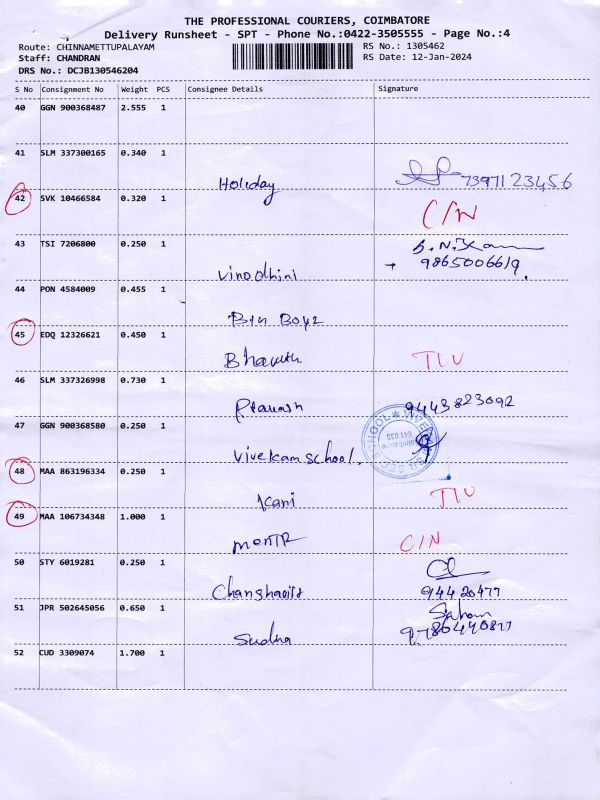 THE PROFESSIONAL COURIERS, COIMBATORE
Delivery Runsheet - SPT - Phone No.:0422-3505555 - Page No.:4
Route: CHINNAMETTUPALAYAM RS No.: 1305462
Staff: CHANDRAN RS Date: 12-Jan-2024
DRS No.: DCJB130546204
S No Consignment No Weight PCS Consignee Details Signature
40 GGN 900368487 2.555 1
41 SLM 337300165 0.340 1
Holiday 7397123456
42 SVK 10466584 0.320 1
C/N
43 TSI 7206800 0.250 1
Vinodhini 9865006619
44 PON 4584009 0.455 1
Bin Boyz
45 EDQ 12326621 0.450 1
46 SLM 337326998 0.730 1
9443823092
47 GGN 900368580 0.250 1
Vivekam School
48 MAA 863196334 0.250 1
Kani
49 MAA 106734348 1.000 1
C/N
50 STY 6019281 0.250 1
51 JPR 502645056 0.650 1
Sudha
52 CUD 3309074 1.700 1